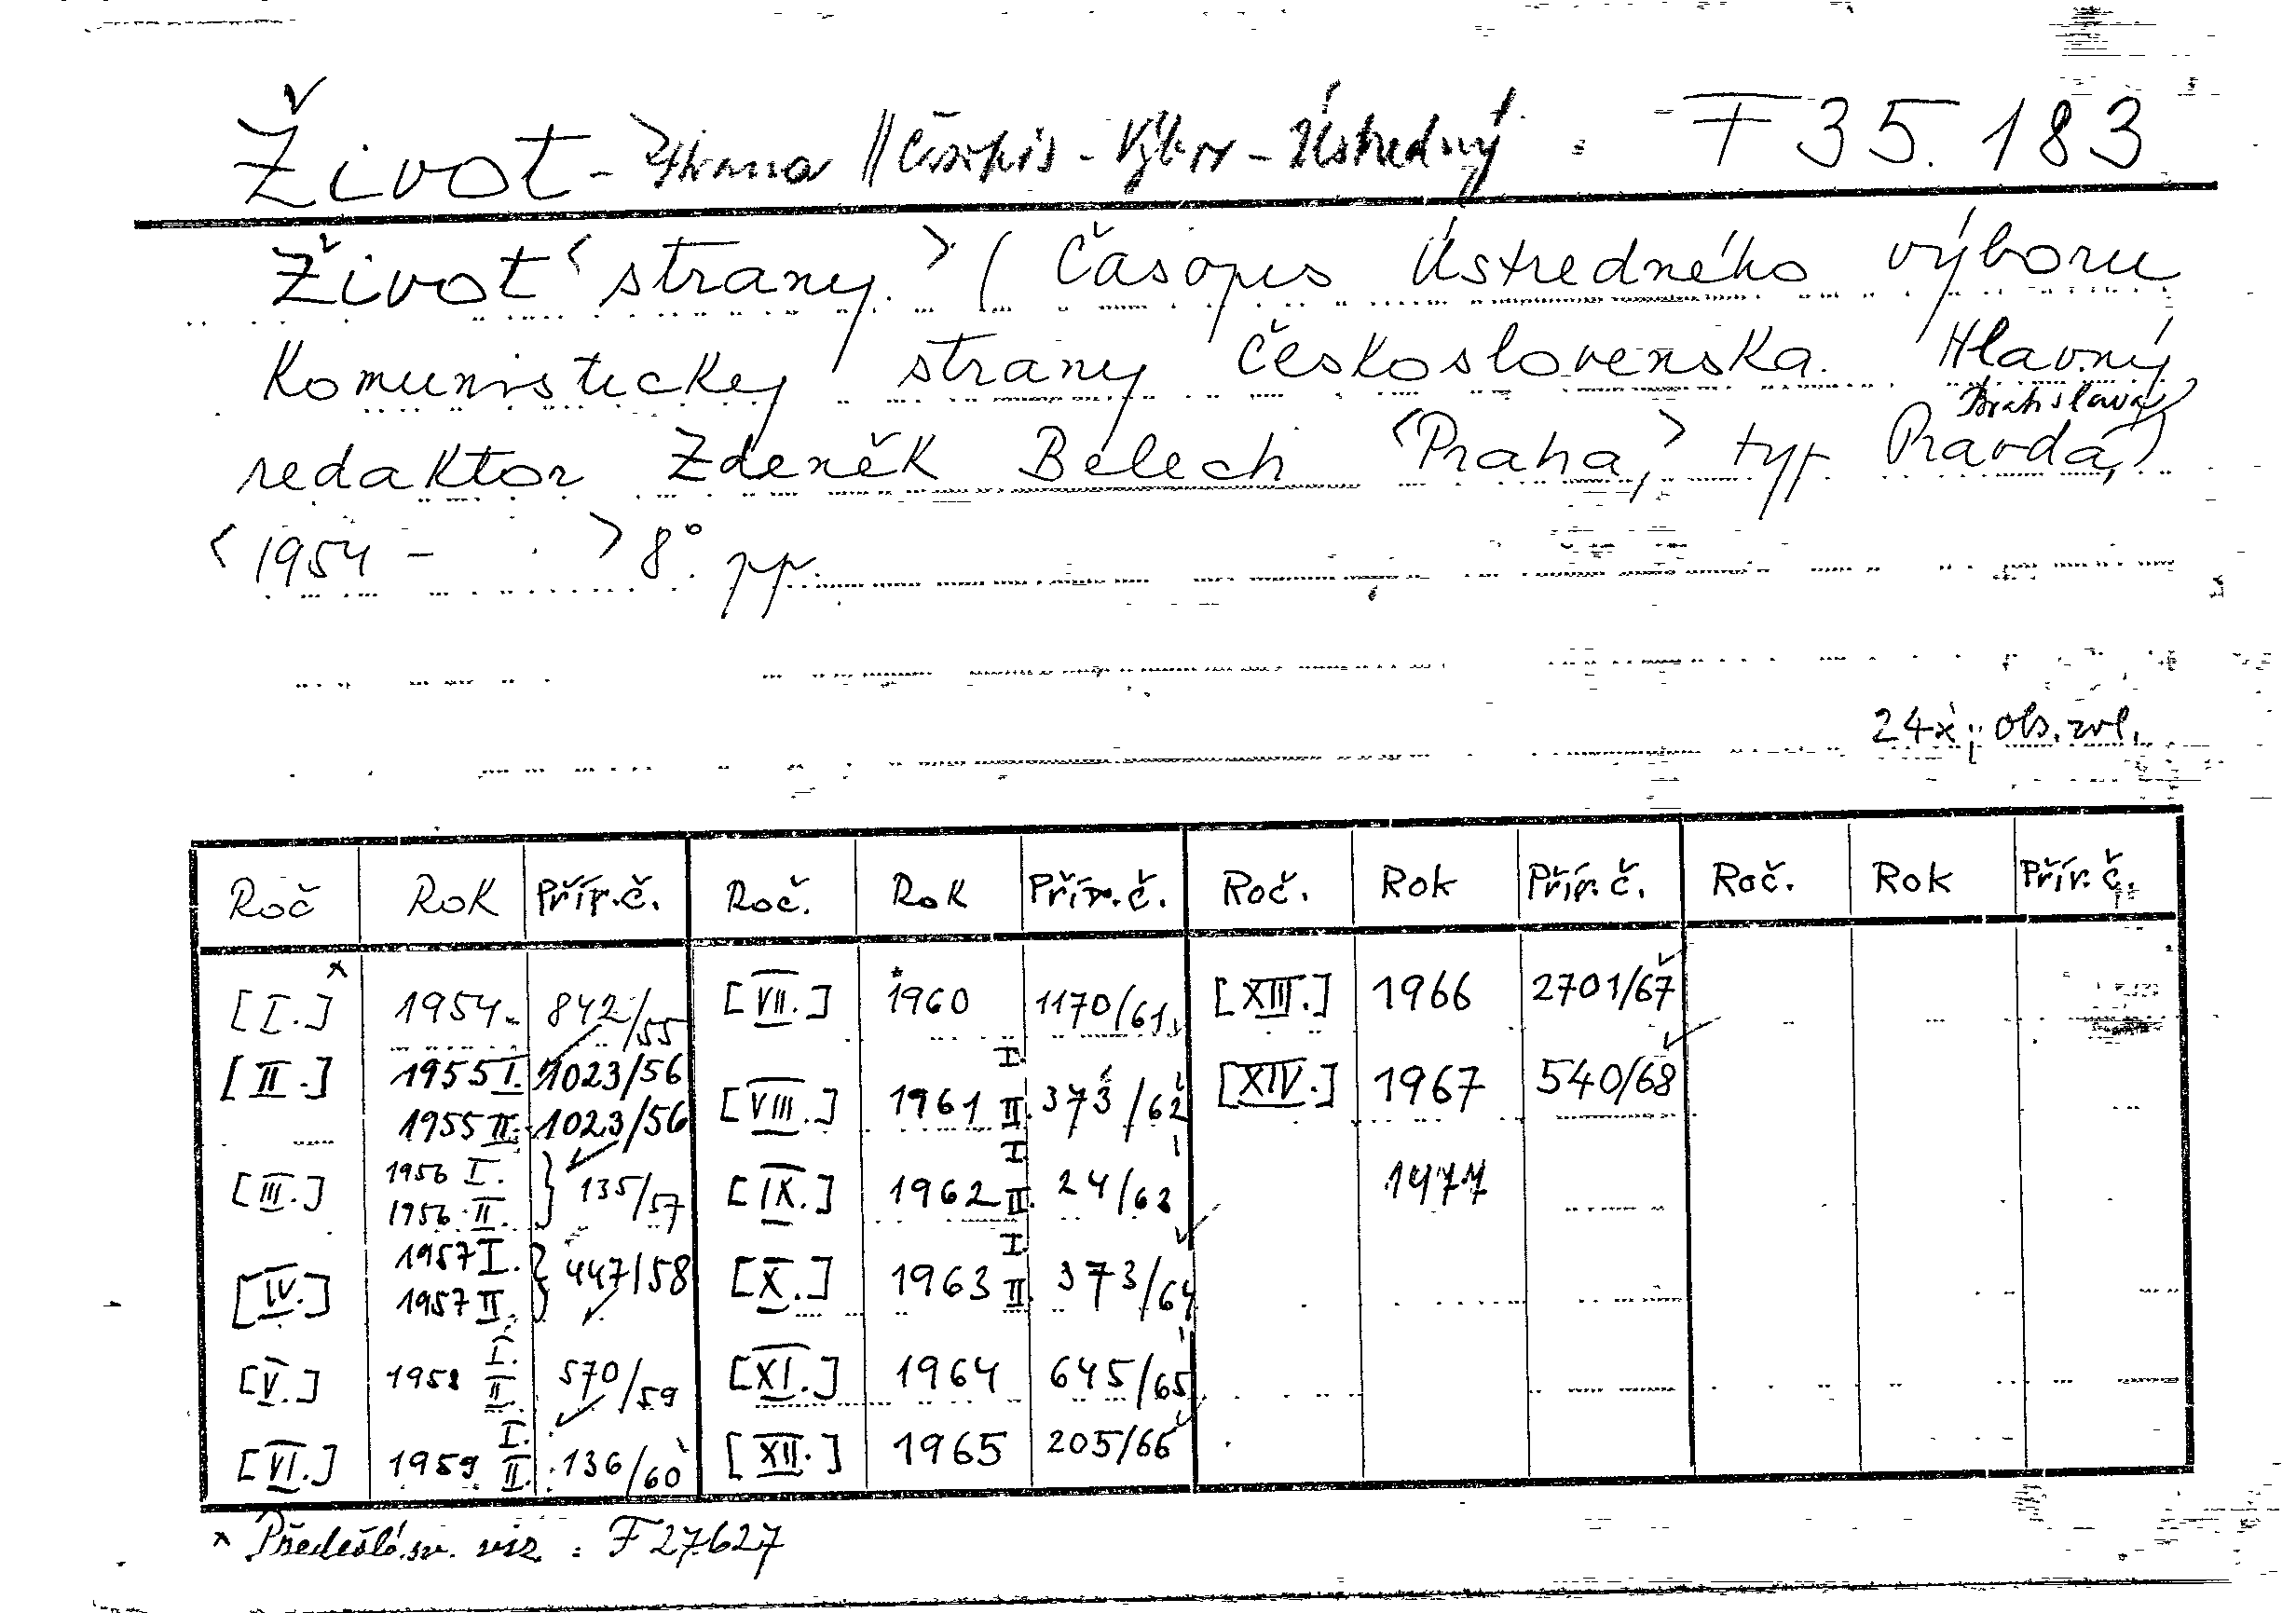 Život - Strana || Časopis - Výbor - Ústredný. F 35.183
Život <strany.> ( Časopis Ústredného výboru
Komunistickej strany Československa. Hlavný
redaktor Zdeněk Belech <Praha,> typ. Pravda, Bratislava)
<1954 - > 8°. pp.
24x; obs. zvl.
Roč Rok Přír.č. Roč. Rok Přír.č. Roč. Rok Přír.č. Roč. Rok Přír.č.
[I.]x 1954 842/55 [VII.] 1960 1170/61 [XIII.] 1966 2701/67
[II.] 1955 I. 1023/56 [VIII.] 1961 I. II. 373/62 [XIV.] 1967 540/68
1955 II. 1023/56
[III.] 1956 I. 1956 II. } 135/57 [IX.] 1962 I. II. 24/63 1977
[IV.] 1957 I. 1957 II. } 447/58 [X.] 1963 I. II. 373/64
[V.] 1958 I. II. 570/59 [XI.] 1964 645/65
[VI.] 1959 I. II. 136/60 [XII.] 1965 205/66
x Předešlé sv. viz: F 27627